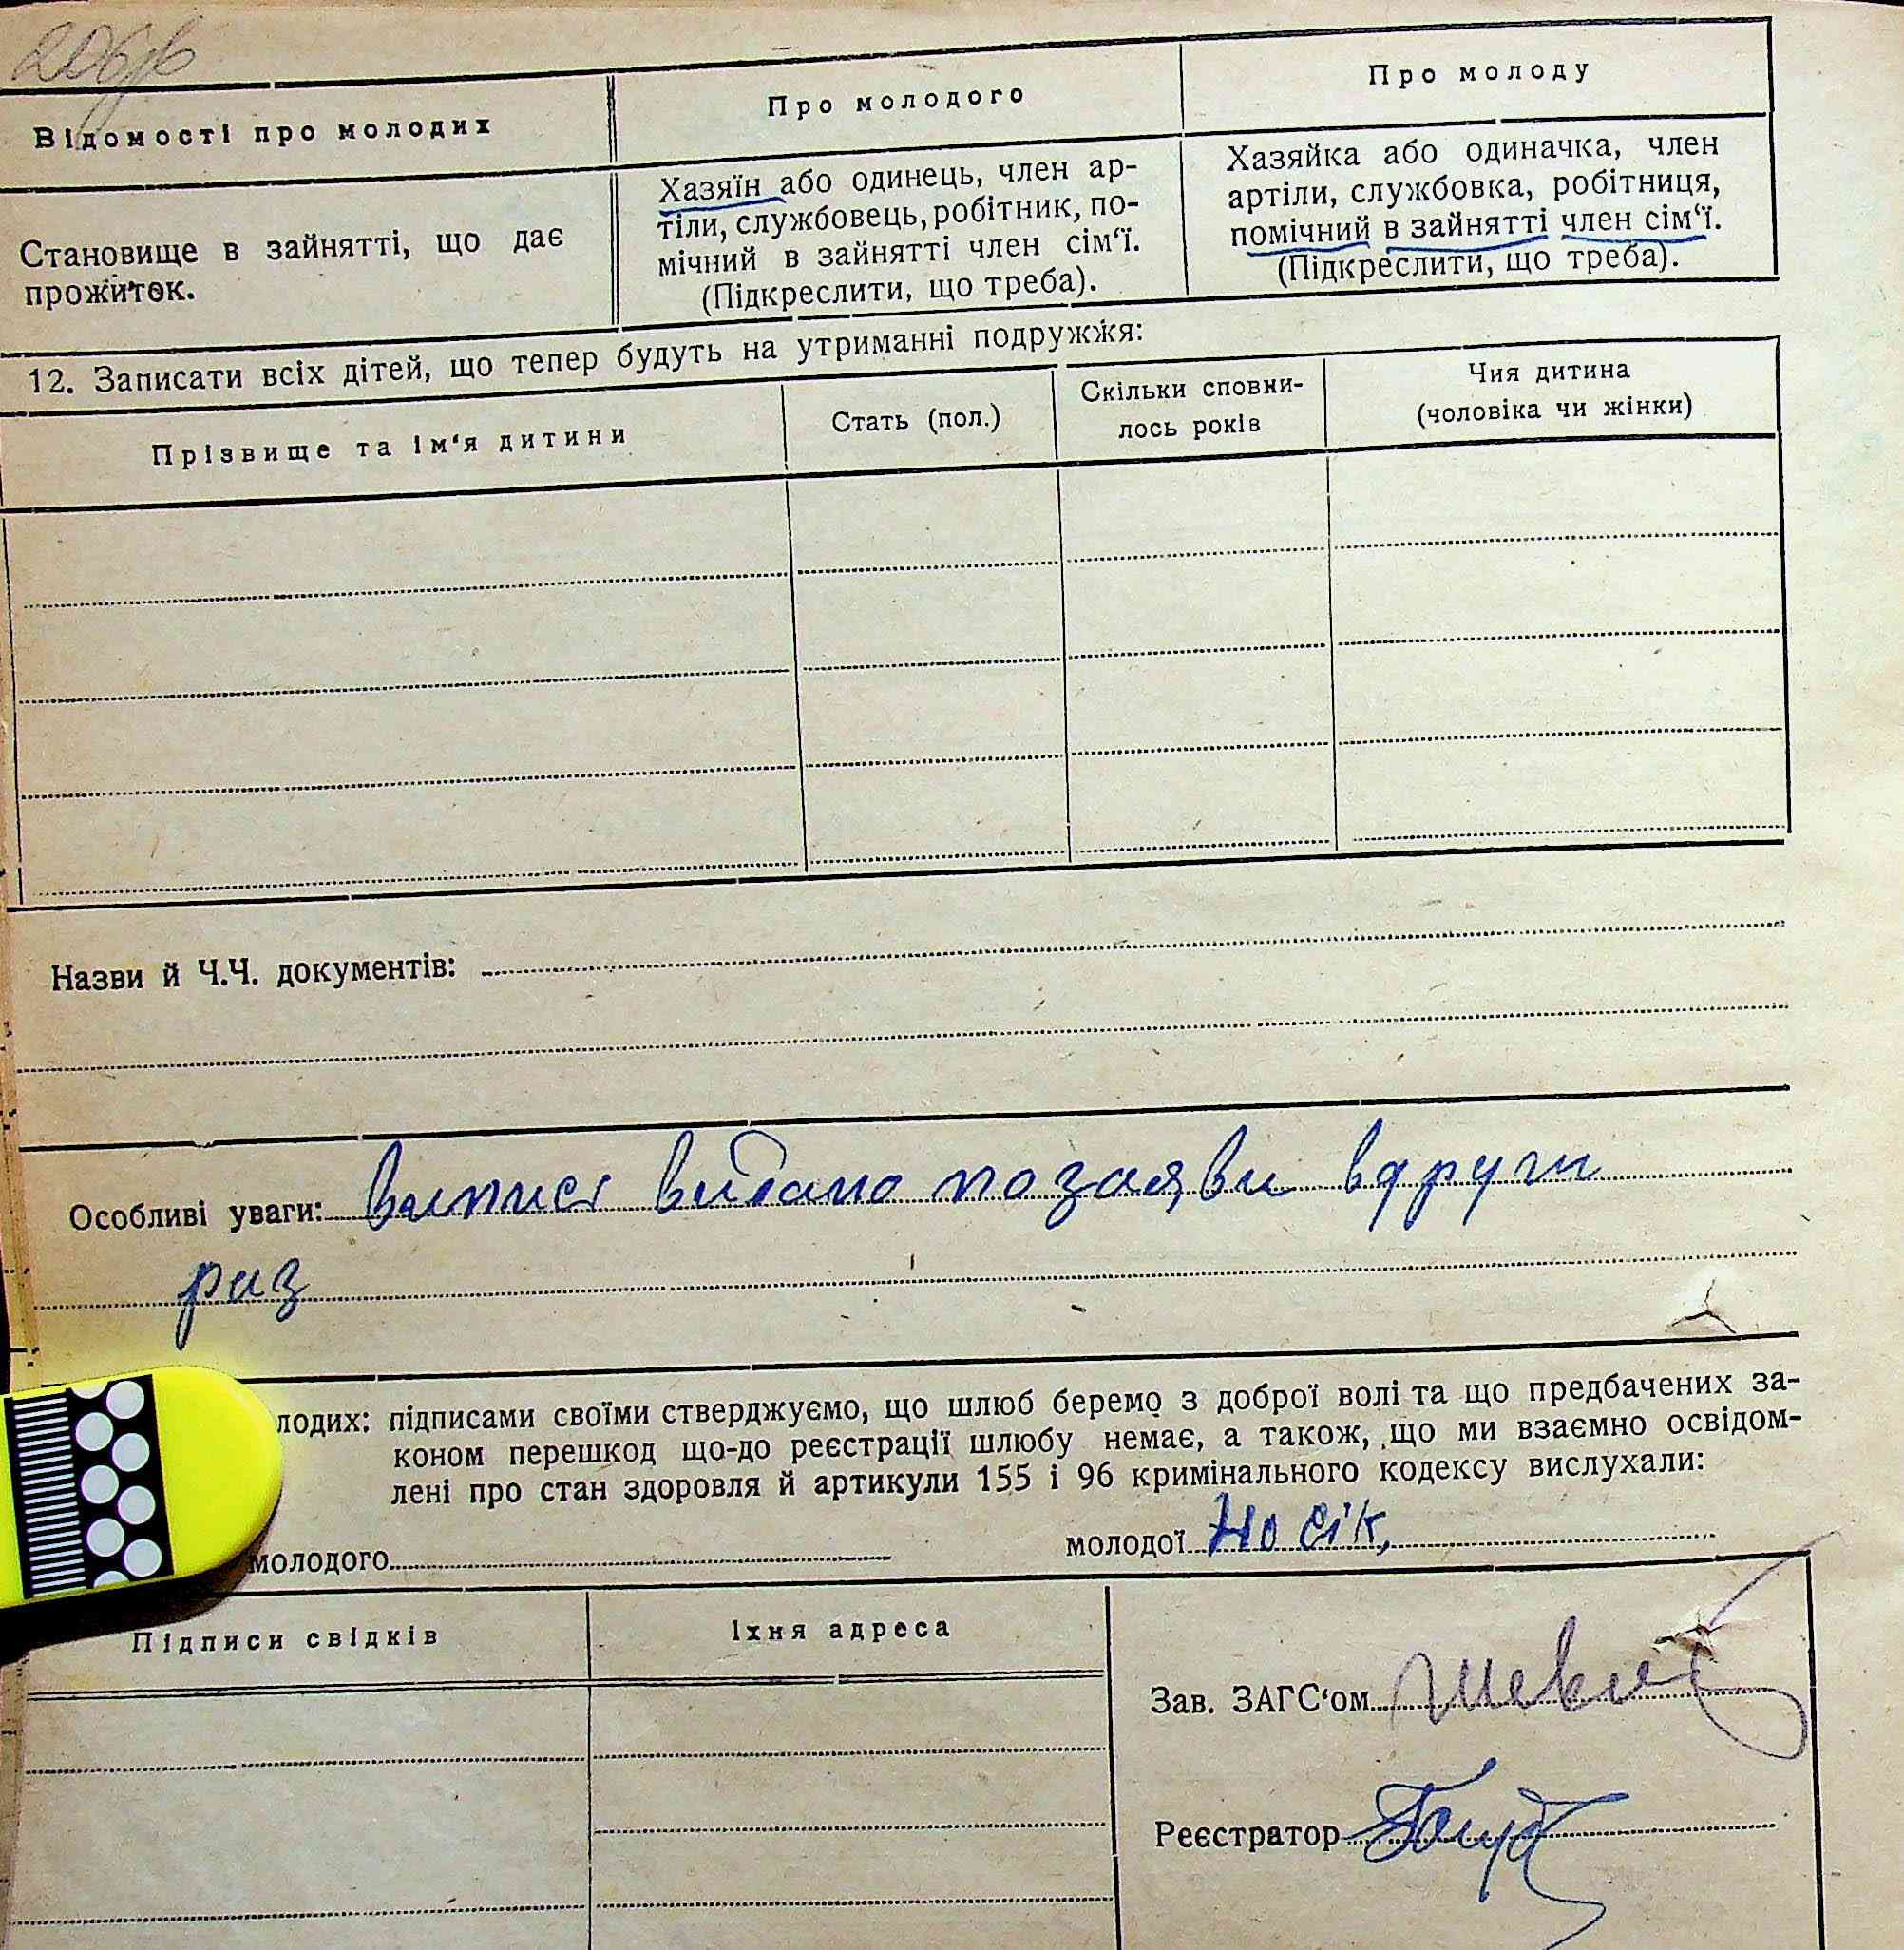 Відомості про молодих
Про молодого
Про молоду
Становище в зайнятті, що дає
прожиток.
Хазяїн або одинець, член ар-
тіли, службовець, робітник, по-
мічний в зайнятті член сім‘ї.
(Підкреслити, що треба).
Хазяйка або одиначка, член
артіли, службовка, робітниця,
помічний в зайнятті член сім‘ї.
(Підкреслити, що треба).
12. Записати всіх дітей, що тепер будуть на утриманні подружжя:
Прізвище та ім‘я дитини
Стать (пол.)
Скільки сповни-
лось років
Чия дитина
(чоловіка чи жінки)
Назви й Ч.Ч. документів:
Особливі уваги: видано по заяви вдруги
раз
лодих: підписами своїми стверджуємо, що шлюб беремо з доброї волі та що предбачених за-
коном перешкод що-до реєстрації шлюбу немає, а також, що ми взаємно освідом-
лені про стан здоровля й артикули 155 і 96 кримінального кодексу вислухали:
молодого
молодої Носік
Підписи свідків
Їхня адреса
Зав. ЗАГС‘ом
Реєстратор